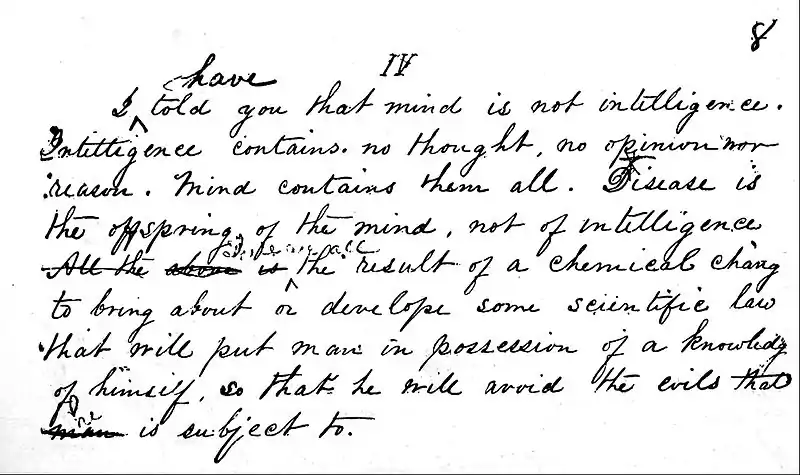 8
IV
have
I told you that mind is not intelligence.
Intelligence contains no thought, no opinion nor
reason. Mind contains them all. Disease is
the offspring of the mind, not of intelligence
All the above is the result of a chemical chang
to bring about or develope some scientific law
that will put man in possession of a knowledg
of himself, so that he will avoid the evils that
he
man is subject to.